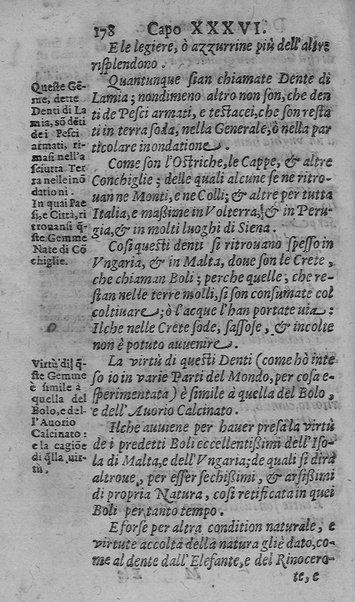 178 Capo XXXVI.
E le legiere, ò azzurrine più dell'altre
risplendono.
Quantunque sian chiamate Dente di
Lamia; nondimeno altro non son, che den
ti de Pesci armati, e testacei, che son resta
ti in terra soda, nella Generale, ò nella par
ticolare inondatione.
Come son l'Ostriche, le Cappe, & altre
Conchiglie; delle quali alcune se ne ritro-
uan ne Monti, e ne Colli; & altre per tutta
Italia, e maßime in Volterra, & in Peru-
gia, & in molti luoghi di Siena.
Cosi questi denti si ritrouano spesso in
Vngaria, & in Malta, doue son le Crete,
che chiaman Boli; perche quelle, che re-
stan nelle terre molli, si son consumate col
coltiuare; ò l'acque l'han portate via:
Ilche nelle Crete sode, sassose, & incolte
non è potuto auuenire.
La virtù di questi Denti (come hò inte
so io in varie Parti del Mondo, per cosa e-
sperimentata) è simile à quella del Bolo,
e dell'Auorio Calcinato.
Ilche auuiene per hauer presa la virtù
de i predetti Boli eccellentißimi dell'Iso-
la di Malta, e dell'Vngaria; de quali si dirà
altroue, per esser sechißimi, & arsißimi
di propria Natura, cosi retificata in quei
Boli per tanto tempo.
E forse per altra condition naturale, e
virtute accolta della natura gliè dato, co-
me al dente dall'Elefante, e del Rinocero-
te, e
Queste Gē-
me, dette
Denti di La
mia, sō dēti
dei Pesci
armati, ri-
masi nell'a
sciutta Ter
ra nelle inō
dationi.
In quai Pae
si, e Città, ri
trouansi q̄-
ste Gemme
Nate di Cō
chiglie.
Virtù di q̄-
ste Gemme
è simile à
quella del
Bolo, e del-
l'Auorio
Calcinato:
e la cagiōe
di q̄lla uir-
tù.